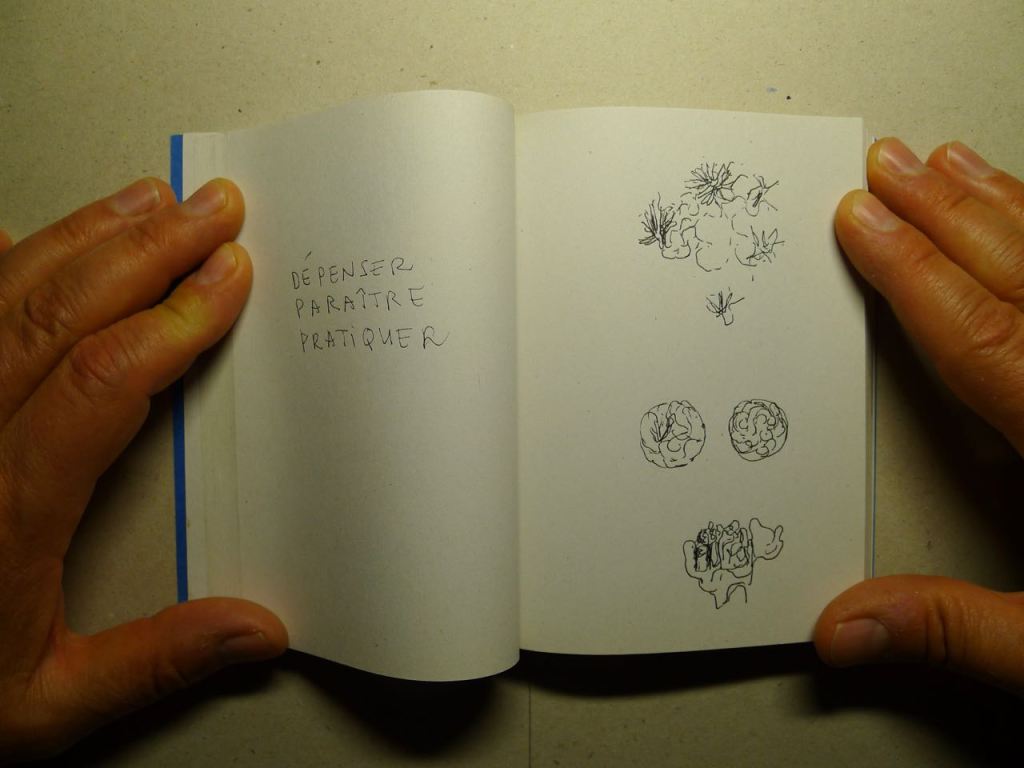 DÉPENSER
PARAÎTRE
PRATIQUER